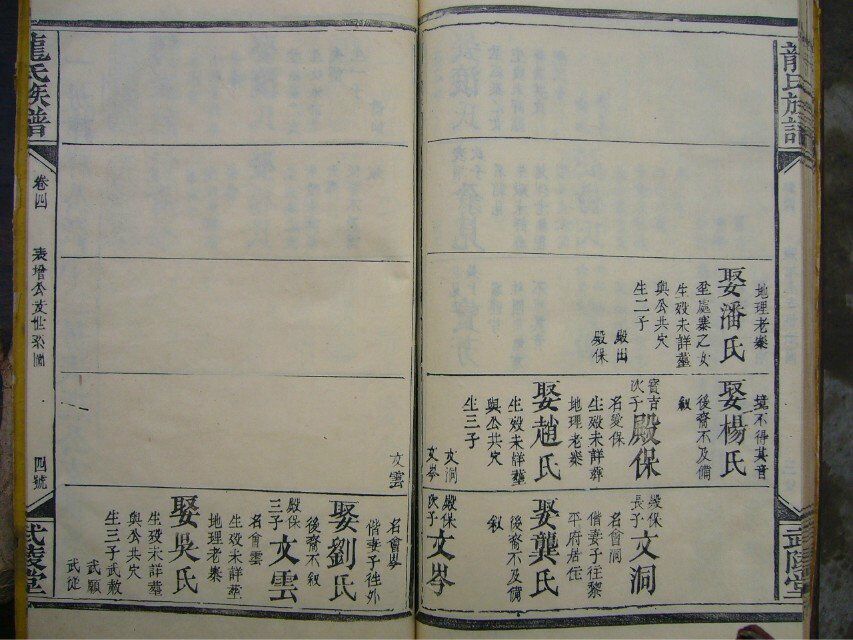 龍氏族譜
武陵堂
地理老寨
娶潘氏
生歿未詳葬
與公共穴
生二子
殿出
殿保
娶楊氏
後裔不及備
敘
寶吉
次子
殿保
名愛保
生歿未詳葬
地理老寨
娶趙氏
生歿未詳葬
與公共穴
生三子
文洞
文岑
殿保
長子
文洞
名會洞
偕妻子往黎
平府居住
娶龔氏
後裔不及備
敘
殿保
次子
文岑
文雲
名會岑
偕妻子往外
娶劉氏
後裔不敘
殿保
三子
文雲
名會雲
生歿未詳葬
地理老寨
娶吳氏
生歿未詳葬
與公共穴
生三子武敖
武願
武從
龍氏族譜
卷四
四號
武陵堂